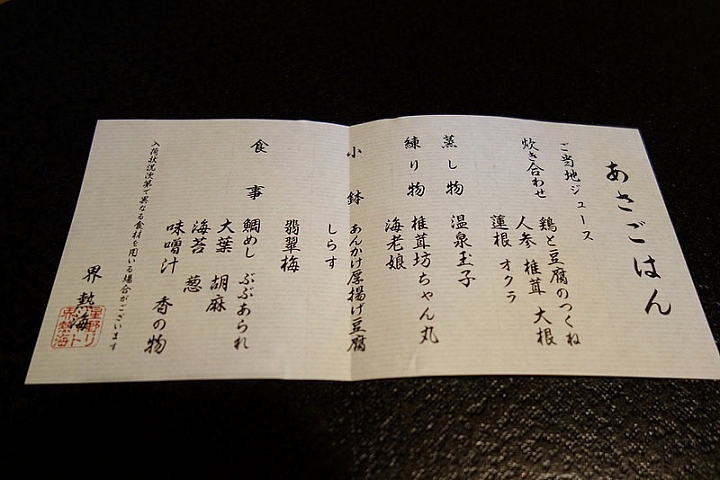 あさごはん
ご当地ジュース
炊き合わせ
鶏と豆腐のつくね
人参 椎茸 大根
蓮根 オクラ
蒸し物 温泉玉子
練り物 椎茸坊ちゃん丸
海老娘
小鉢 あんかけ厚揚げ豆腐
しらす
翡翠梅
食事 鯛めし ぶぶあられ
大葉 胡麻
海苔 葱
味噌汁 香の物
入荷状況次第で異なる食材を用いる場合がございます
界 熱海
星野リ
ゾート
界熱海